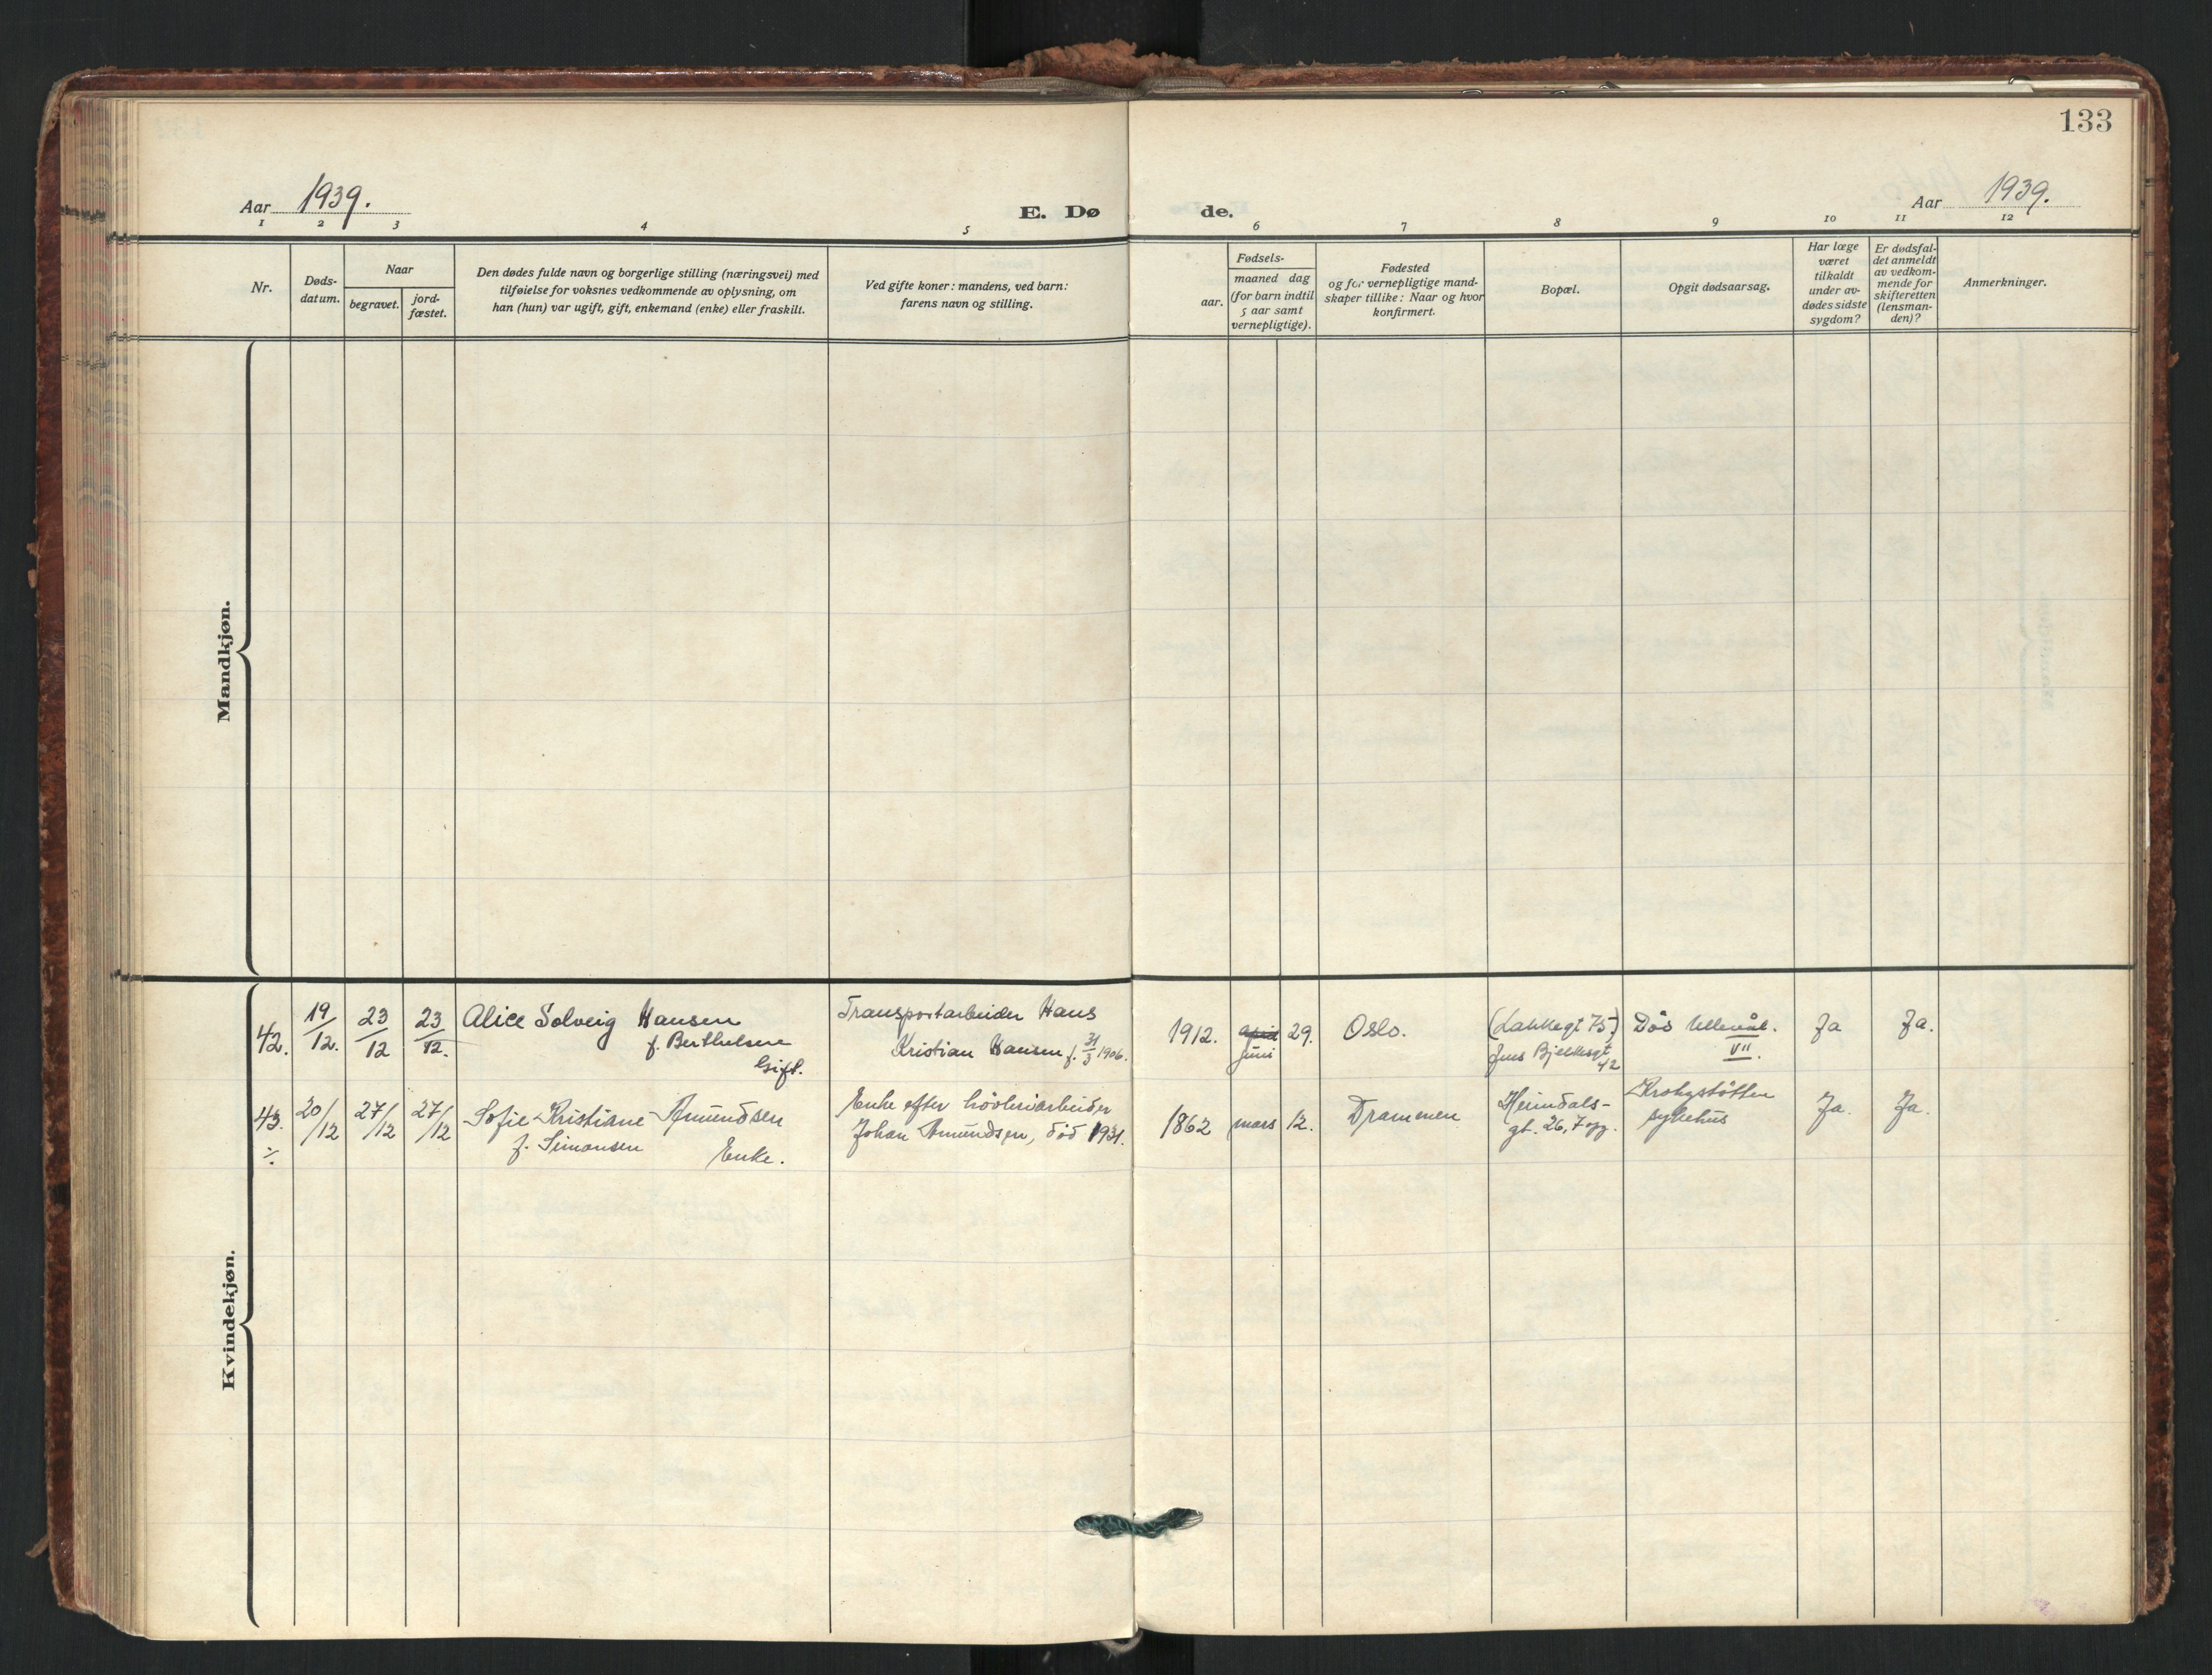 133
Aar 1939.
E. Dø
de.
Aar 1939.
1 2 3 4 5 6 7 8 9 10 11 12
Nr.
Døds-
datum.
Naar
begravet.
jord-
fæstet.
Den dødes fulde navn og borgerlige stilling (næringsvei) med
tilføielse for voksnes vedkommende av oplysning, om
han (hun) var ugift, gift, enkemand (enke) eller fraskilt.
Ved gifte koner: mandens, ved barn:
farens navn og stilling.
aar.
Fødsels-
maaned dag
(for barn indtil
5 aar samt
vernepligtige).
Fødested
og for vernepligtige mand-
skaper tillike: Naar og hvor
konfirmert.
Bopæl.
Opgit dødsaarsag.
Har læge
været
tilkaldt
under av-
dødes sidste
sygdom?
Er dødsfal-
det anmeldt
av vedkom-
mende for
skifteretten
(lensman-
den)?
Anmerkninger.
Mandkjøn.
Kvindekjøn.
42.
19/12.
23/12
23/12.
Alice Solveig Hansen
f. Berthelsen
Gift.
Transportarbeider Hans
Kristian Hansen f. 31/3 1906.
1912.
april
juni
29.
Oslo.
(Lakkegt 75)
Jens Bjelkesgt
42
Død Ullevål.
VII.
Ja
Ja.
43.
÷
20/12
27/12
27/12
Sofie Kristiane Amundsen
f. Simonsen
Enke.
Enke efter høvleriarbeider
Johan Amundsen, død 1931.
1862
mars
12.
Drammen
Heimdals-
gt. 26, 7 opg.
Krohgstøtten
sykehus
Ja.
Ja.